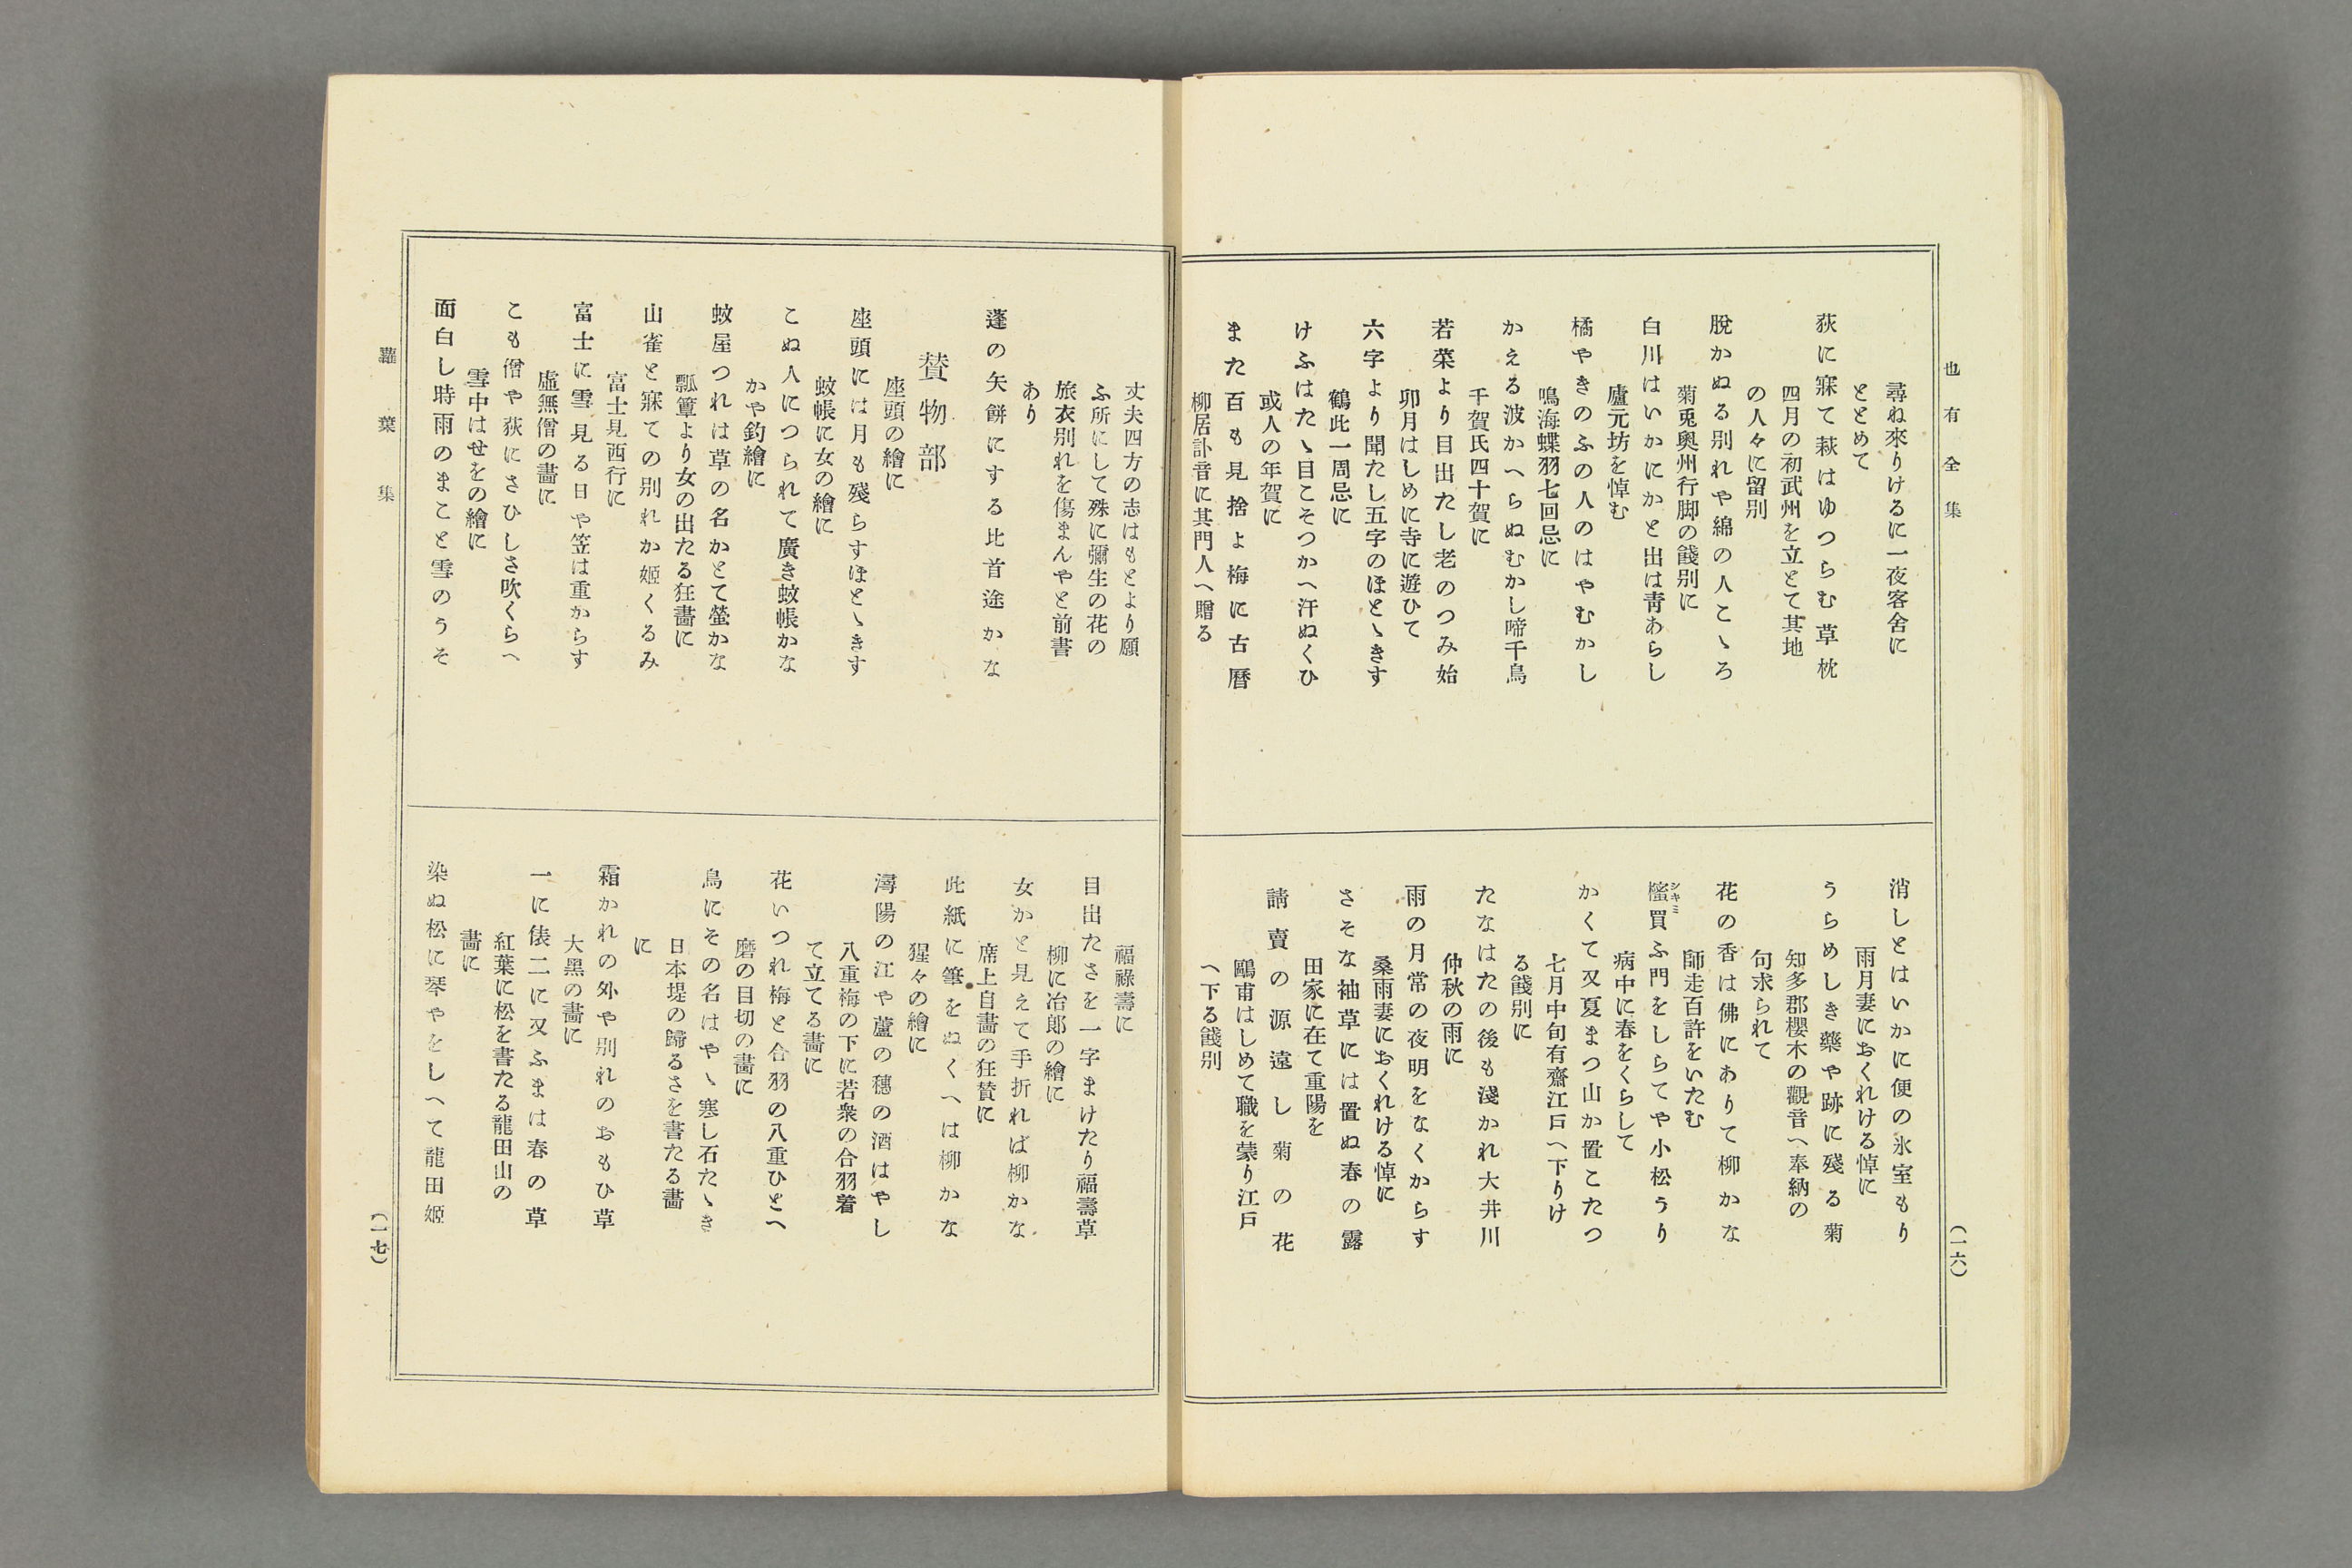 也有全集
尋ね來りけるに一夜客舍に
ととめて
荻に寐て萩はゆつらむ草枕
四月の初武州を立とて其地
の人々に留別
脫かぬる別れや綿の人こゝろ
菊兎奧州行脚の餞別に
白川はいかにかと出は靑あらし
廬元坊を悼む
橘やきのふの人のはやむかし
鳴海蝶羽七回忌に
かえる波かへらぬむかし啼千鳥
千賀氏四十賀に
若菜より目出たし老のつみ始
卯月はしめに寺に遊ひて
六字より聞たし五字のほとゝきす
鶴此一周忌に
けふはたゝ目こそつかへ汗ぬくひ
或人の年賀に
また百も見捨よ梅に古曆
柳居訃音に其門人へ贈る
消しとはいかに便の氷室もり
雨月妻におくれける悼に
うらめしき藥や跡に殘る菊
知多郡櫻木の觀音へ奉納の
句求られて
花の香は佛にありて柳かな
師走百許をいたむ
樒買ふ門をしらてや小松うり
シキミ
病中に春をくらして
かくて又夏まつ山か置こたつ
七月中旬有齋江戶へ下りけ
る餞別に
たなはたの後も淺かれ大井川
仲秋の雨に
雨の月常の夜明をなくからす
桑雨妻におくれける悼に
さそな袖草には置ぬ春の露
田家に在て重陽を
請賣の源遠し菊の花
鷗甫はしめて職を蒙り江戶
へ下る餞別
(一六)
丈夫四方の志はもとより願
ふ所にして殊に彌生の花の
旅衣別れを傷まんやと前書
あり
蓬の矢餅にする比首途かな
賛物部
座頭の繪に
座頭には月も殘らすほとゝきす
蚊帳に女の繪に
こぬ人につられて廣き蚊帳かな
かや釣繪に
蚊屋つれは草の名かとて螢かな
瓢簞より女の出たる狂畵に
山雀と寐ての別れか姬くるみ
富士見西行に
富士に雪見る日や笠は重からす
虛無僧の畵に
こも僧や荻にさひしさ吹くらへ
雪中はせをの繪に
面白し時雨のまこと雪のうそ
福祿壽に
目出たさを一字まけたり福壽草
柳に冶郎の繪に
女かと見えて手折れば柳かな
席上自畵の狂賛に
此紙に筆をぬくへは柳かな
猩々の繪に
潯陽の江や蘆の穗の酒はやし
八重梅の下に若衆の合羽着
て立てる畵に
花いつれ梅と合羽の八重ひとへ
磨の目切の畵に
鳥にその名はやゝ寒し石たゝき
日本堤の歸るさを書たる畵
に
霜かれの外や別れのおもひ草
大黑の畵に
一に俵二に又ふまは春の草
紅葉に松を書たる龍田山の
畵に
染ぬ松に琴やをしへて龍田姬
蘿葉集
(一七)